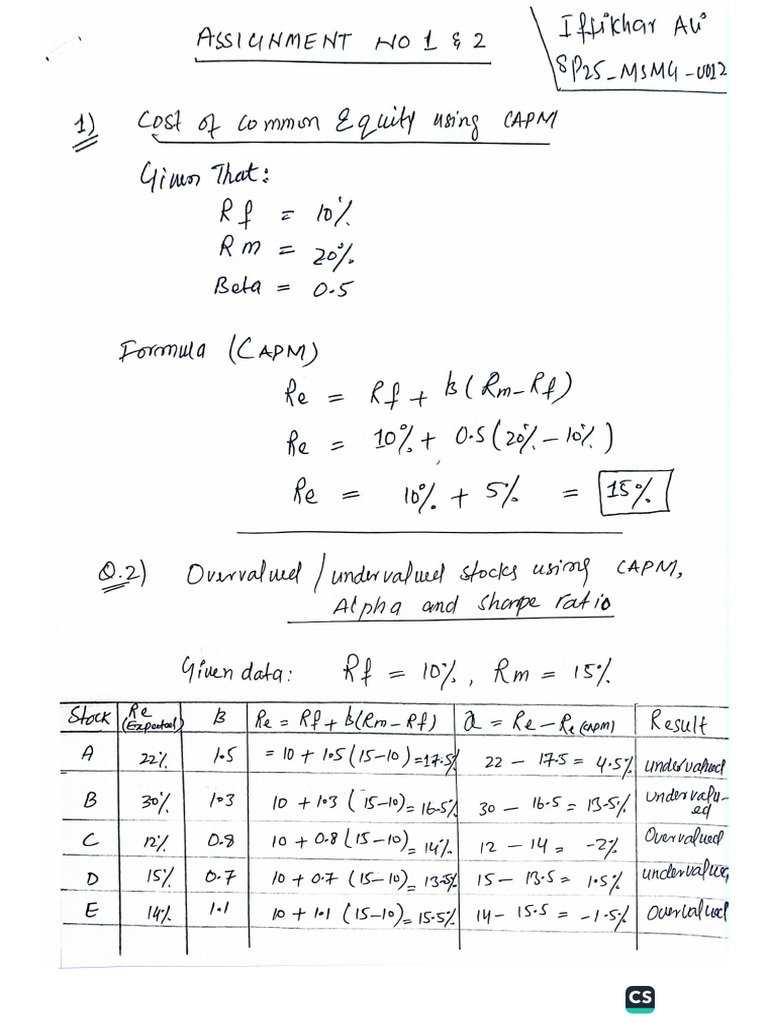 ASSIGNMENT NO 1 & 2
Iftikhar Ali
SP25_MSMG-0012
1) Cost of common Equity using CAPM
Given That:
Rf = 10%
Rm = 20%
Beta = 0.5
Formula (CAPM)
Re = Rf + B(Rm-Rf)
Re = 10% + 0.5(20% - 10%)
Re = 10% + 5% = 15%
Q.2) Overvalued / undervalued stocks using CAPM,
Alpha and Sharpe ratio
Given data: Rf = 10%, Rm = 15%
Stock Re (Expected) B Re = Rf + B(Rm-Rf) a = Re - Re (CAPM) Result
A 22% 1.5 = 10 + 1.5(15-10) = 17.5% 22 - 17.5 = 4.5% undervalued
B 30% 1.3 10 + 1.3 (15-10) = 16.5% 30 - 16.5 = 13.5% undervalu-
ed
C 12% 0.8 10 + 0.8(15-10) = 14% 12 - 14 = -2% Overvalued
D 15% 0.7 10 + 0.7 (15-10) = 13.5% 15 - 13.5 = 1.5% undervalue
E 14% 1.1 10 + 1.1 (15-10) = 15.5% 14 - 15.5 = -1.5% Overvalued
CS